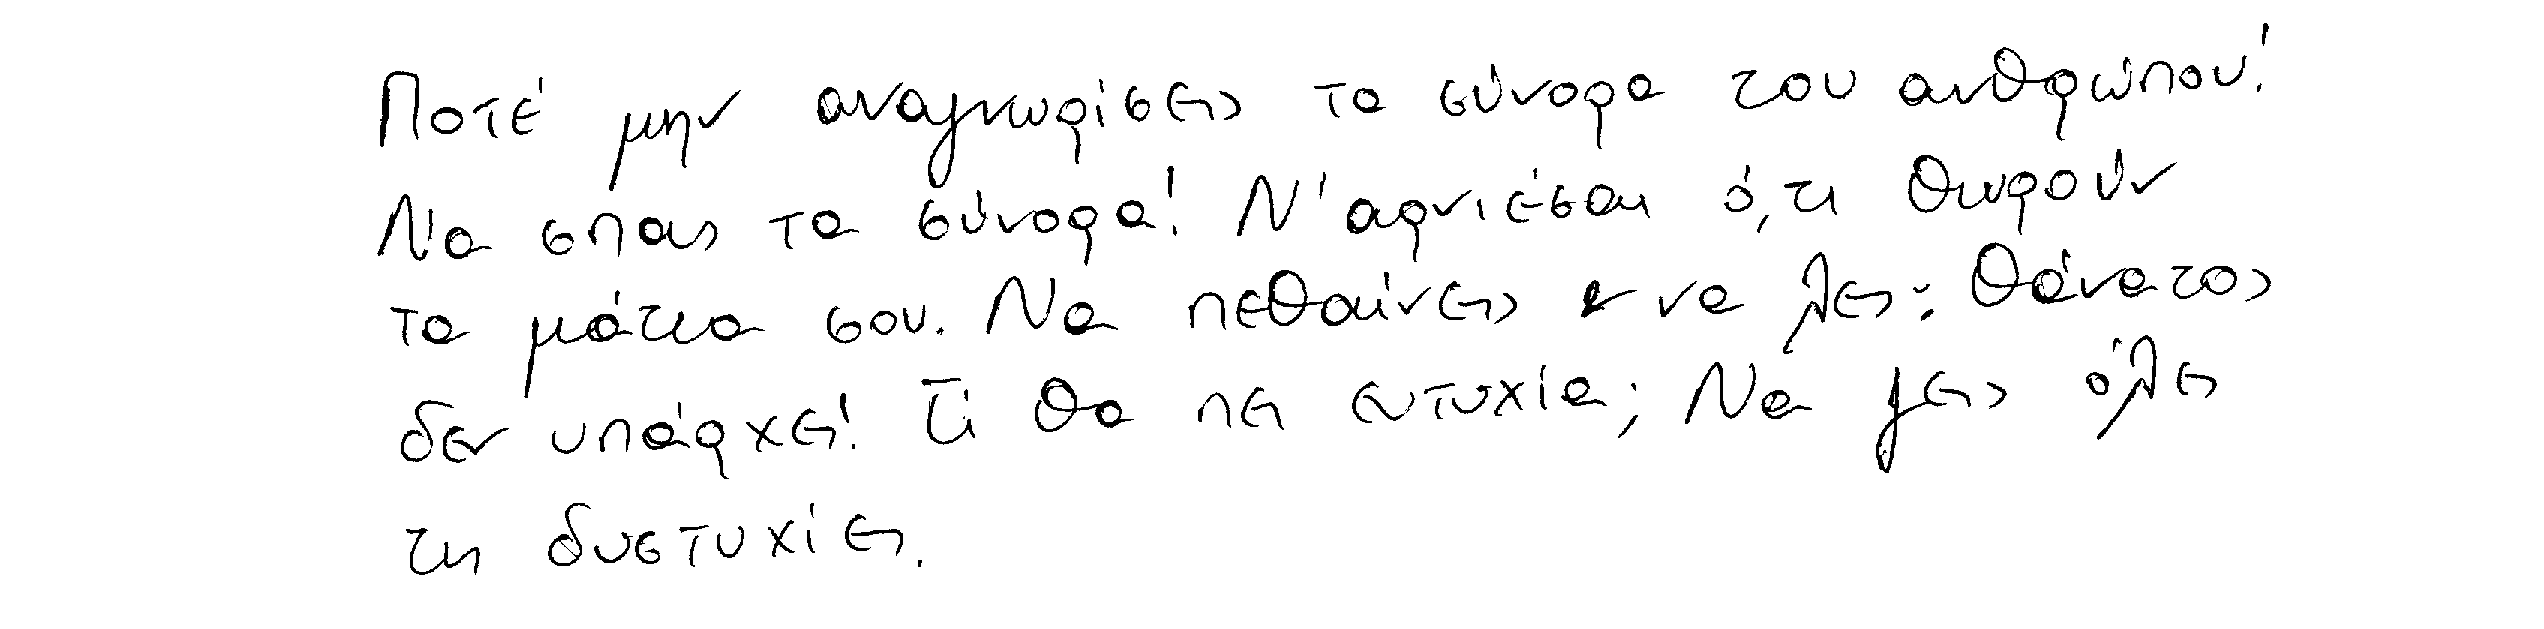 Ποτέ μην αναγνωρίσεις τα σύνορα του ανθρώπου!
Να σπας τα σύνορα! Ν'αρνιέσαι ό,τι θωρούν
τα μάτια σου. Να πεθαίνεις & να λες: Θάνατος
δεν υπάρχει! Τι θα πει ευτυχία; Να ζεις όλες
τις δυστυχίες.